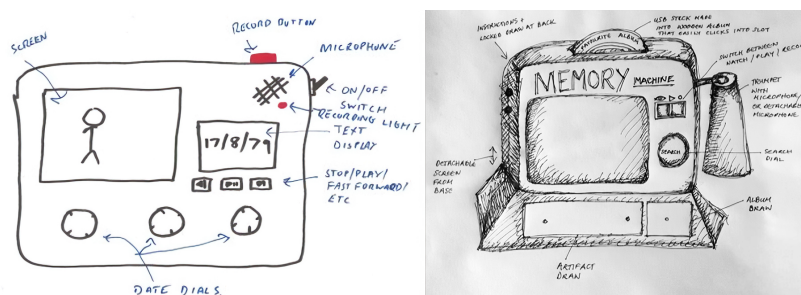 RECORD BUTTON
SCREEN
MICROPHONE
ON/OFF
SWITCH
RECORDING LIGHT
TEXT
DISPLAY
17/8/79
STOP/PLAY/
FAST FORWARD/
ETC
DATE DIALS
INSTRUCTIONS +
LOCKED DRAW AT BACK
USB STICK MADE
INTO WOODEN ALBUM
THAT EASILY CLICKS INTO SLOT
FAVOURITE ALBUM
SWITCH BETWEEN
WATCH / PLAY / RECO
MEMORY MACHINE
TRUMPET
WITH
MICROPHONE/
OR DETACHABLE
MICROPHONE
SEARCH
SEARCH
DIAL
DETACHABLE
SCREEN
FROM
BASE
ALBUM
DRAW
ARTIFACT
DRAW